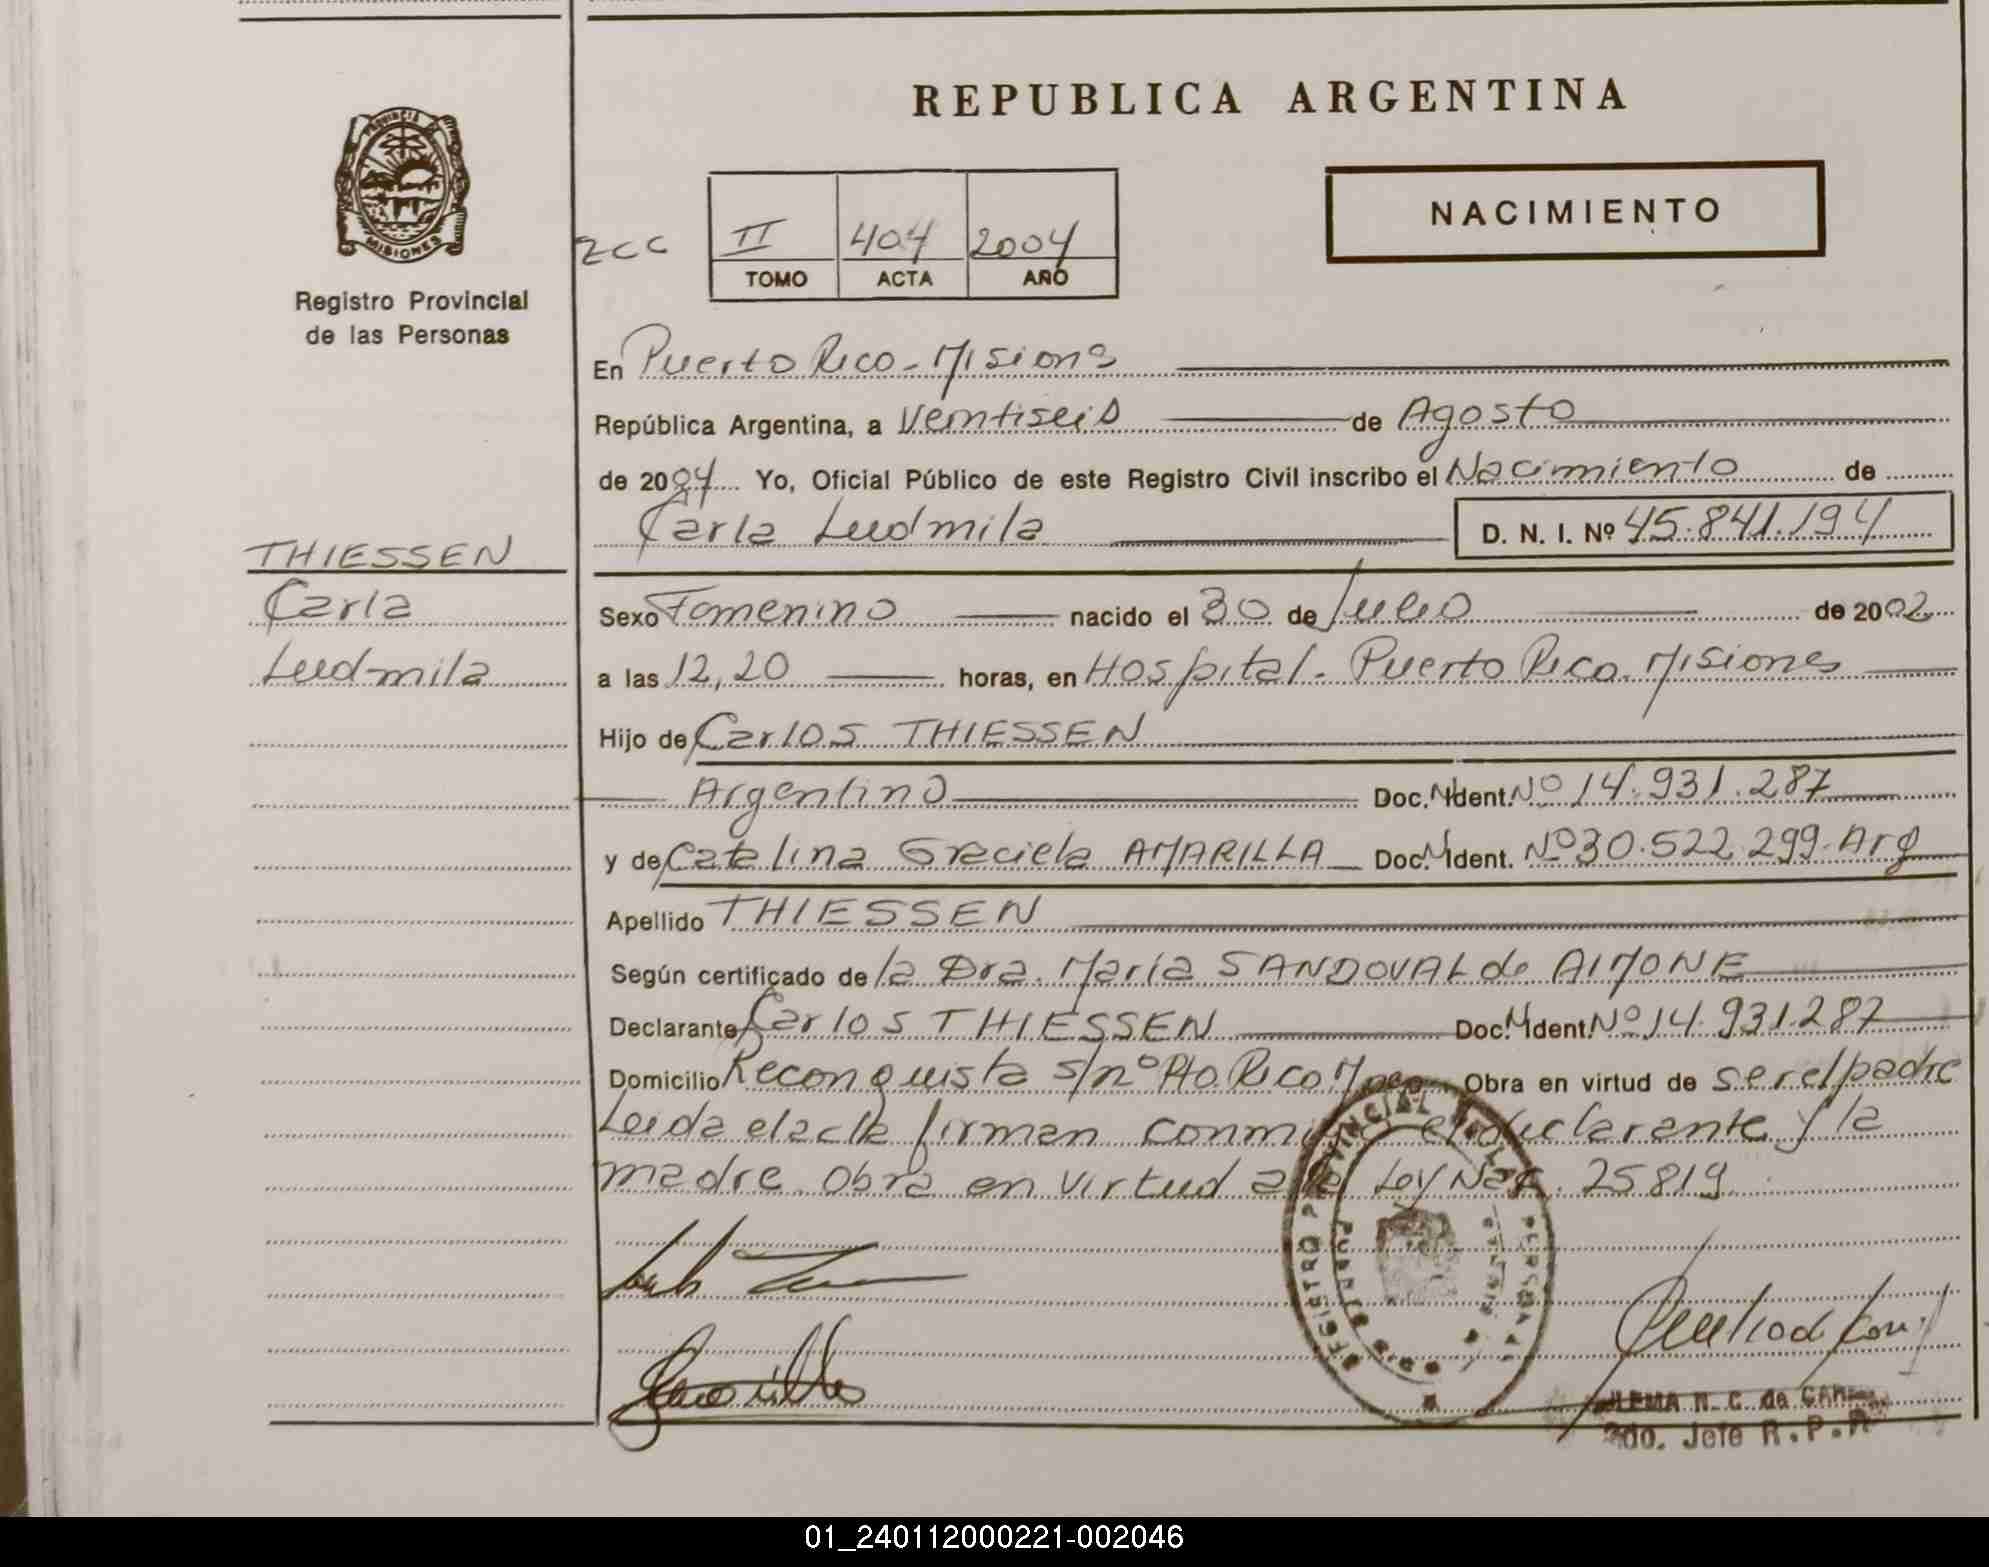 REPUBLICA ARGENTINA
PROVINCIA DE
MISIONES
Registro Provincial
de las Personas
NACIMIENTO
ZCC
II 404 2004
TOMO ACTA AÑO
En Puerto Rico - Misiones
República Argentina, a Veintiseis de Agosto
de 2004 Yo, Oficial Público de este Registro Civil inscribo el Nacimiento de
Carla Ludmila D. N. I. Nº 45.841.194
THIESSEN
Carla
Ludmila
Sexo Femenino nacido el 30 de Julio de 2002
a las 12,20 horas, en Hospital - Puerto Rico. Misiones
Hijo de Carlos THIESSEN
Argentino Doc. M Ident. Nº 14.931.287
y de Catalina Graciela AMARILLA Doc. M Ident. Nº 30.522.299. Arg
Apellido THIESSEN
Según certificado de la Dra. María SANDOVAL de AIMONE
Declarante Carlos THIESSEN Doc. M Ident. Nº 14.931.287
Domicilio Reconquista s/nº Pto Rico Obra en virtud de ser el padre
Leida el acta firman conmigo el declarante y la
madre. Obra en virtud a la Ley Nac. 25819
REGISTRO PROVINCIAL DE LAS PERSONAS
MISIONES
N. C. de
2do. Jefe R.P.P.
01_240112000221-002046